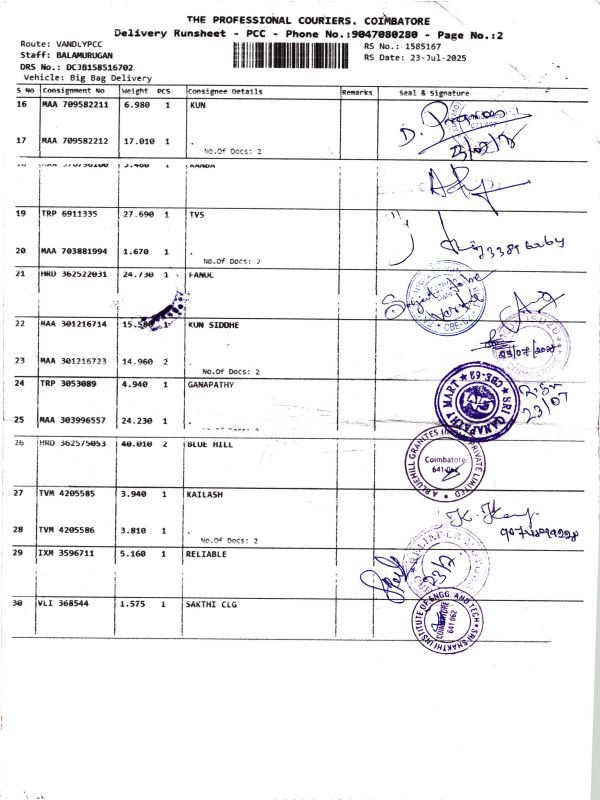 THE PROFESSIONAL COURIERS. COIMBATORE
Delivery Runsheet - PCC - Phone No.:9047080280 - Page No.:2
Route: VANDLYPCC
RS No.: 1585167
Staff: BALAMURUGAN
RS Date: 23-Jul-2025
DRS No.: DCJB158516702
Vehicle: Big Bag Delivery
S No Consignment No Weight PCS Consignee Details Remarks Seal & Signature
16 MAA 709582211 6.980 1 KUN
17 MAA 709582212 17.010 1 .
No.Of Docs: 2
19 TRP 6911335 27.690 1 TVS
20 MAA 703881994 1.670 1 .
No.Of Docs: 2
21 HRD 362522031 24.730 1 FANUC
22 MAA 301216714 15.580 1 KUN SIDDHE
ISUZU
23 MAA 301216723 14.960 2 .
No.Of Docs: 2
23/07/2025
24 TRP 3053089 4.940 1 GANAPATHY
SRI GANAPATHY MART ★ CBE-62 ★
23/07
25 MAA 303996557 24.230 1 .
26 HRD 362575053 40.010 2 BLUE HILL
Coimbatore
641 062
27 TVM 4205585 3.940 1 KAILASH
28 TVM 4205586 3.810 1 .
No.Of Docs: 2
29 IXM 3596711 5.160 1 RELIABLE
23/7
30 VLI 368544 1.575 1 SAKTHI CLG
SRI SHAKTHI INSTITUTE OF ENGG. AND TECH ★
COIMBATORE
641 062